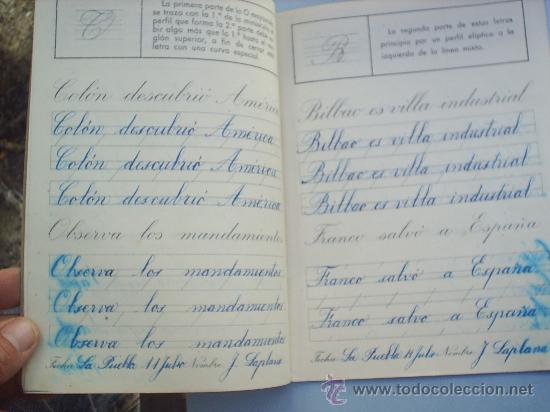 La primera parte de la O mayúscula
se traza con la 1.ª de la
perfil que forma la 2.ª parte debe
bir algo más que la 1.ª hasta el
glón superior, a fin de cerrar
letra con una curva especial.
Colón descubrió América
Colón descubrió América
Colón descubrió América
Colón descubrió América
Observa los mandamientos
Observa los mandamientos
Observa los mandamientos
Observa los mandamientos
Fecha La Puebla 11 Julio Nombre J. Laplana
B
La segunda parte de estas letras
principia por un perfil elíptico a la
izquierda de la línea mixta.
Bilbao es villa industrial
Bilbao es villa industrial
Bilbao es villa industrial
Bilbao es villa industrial
Franco salvó a España
Franco salvó a España
Franco salvó a España
Fecha La Puebla Julio Nombre J. Laplana
todocoleccion
www.todocoleccion.net